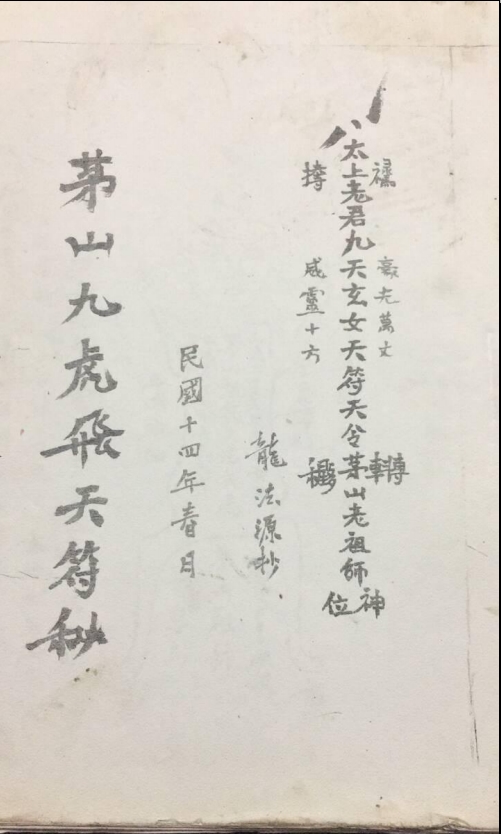 太上老君九天玄女天符天令茅山老祖師神位
毫光萬丈
威靈十方
龍法源抄
民國十四年春日
茅山九虎飛天符秘